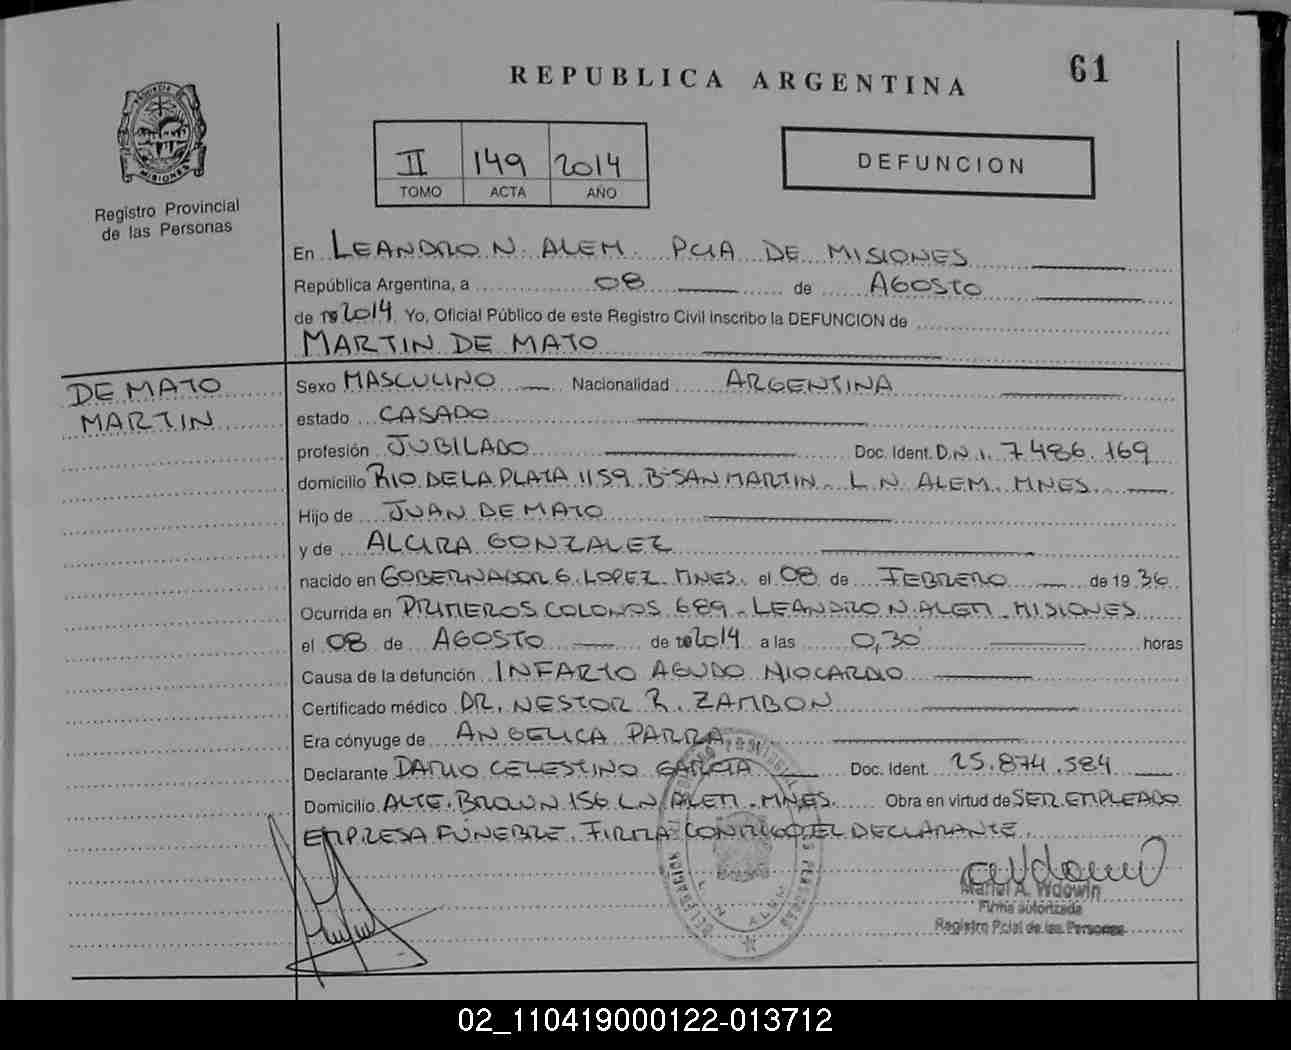 REPUBLICA ARGENTINA
61
MISIONES
Registro Provincial
de las Personas
II 149 2014
TOMO ACTA AÑO
DEFUNCION
En LEANDRO N. ALEM. PCIA DE MISIONES
República Argentina, a 08 de AGOSTO
de 19 2014 Yo, Oficial Público de este Registro Civil inscribo la DEFUNCION de
MARTIN DE MATO
DE MATO
MARTIN
Sexo MASCULINO Nacionalidad ARGENTINA
estado CASADO
profesión JUBILADO Doc. Ident. D.N.I. 7.486.169
domicilio RIO DE LA PLATA 1159. B-SAN MARTIN. L.N. ALEM. MNES.
Hijo de JUAN DE MATO
y de ALCIRA GONZALEZ
nacido en GOBERNADOR G. LOPEZ. MNES. el 08 de FEBRERO de 19 36
Ocurrida en PRIMEROS COLONOS 689 - LEANDRO N. ALEM - MISIONES
el 08 de AGOSTO de 19 2014 a las 0,30 horas
Causa de la defunción INFARTO AGUDO MIOCARDIO
Certificado médico DR. NESTOR R. ZAMBON
Era cónyuge de ANGELICA PARRA
Declarante DARIO CELESTINO GARCIA Doc. Ident. 25.874.584
Domicilio ALTE. BROWN 156 L.N. ALEM - MNES. Obra en virtud de SER EMPLEADO
EMPRESA FUNEBRE. FIRMA CONMIGO EL DECLARANTE
Mariel A. Wdowin
Firma autorizada
Registro Pcial de las Personas
02_110419000122-013712